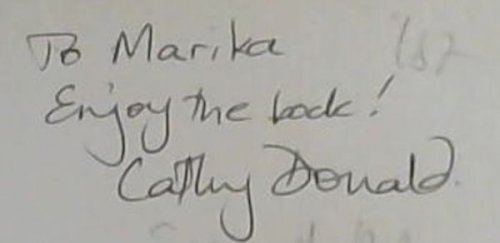 To Marika
Enjoy the book!
Cathy Donald.